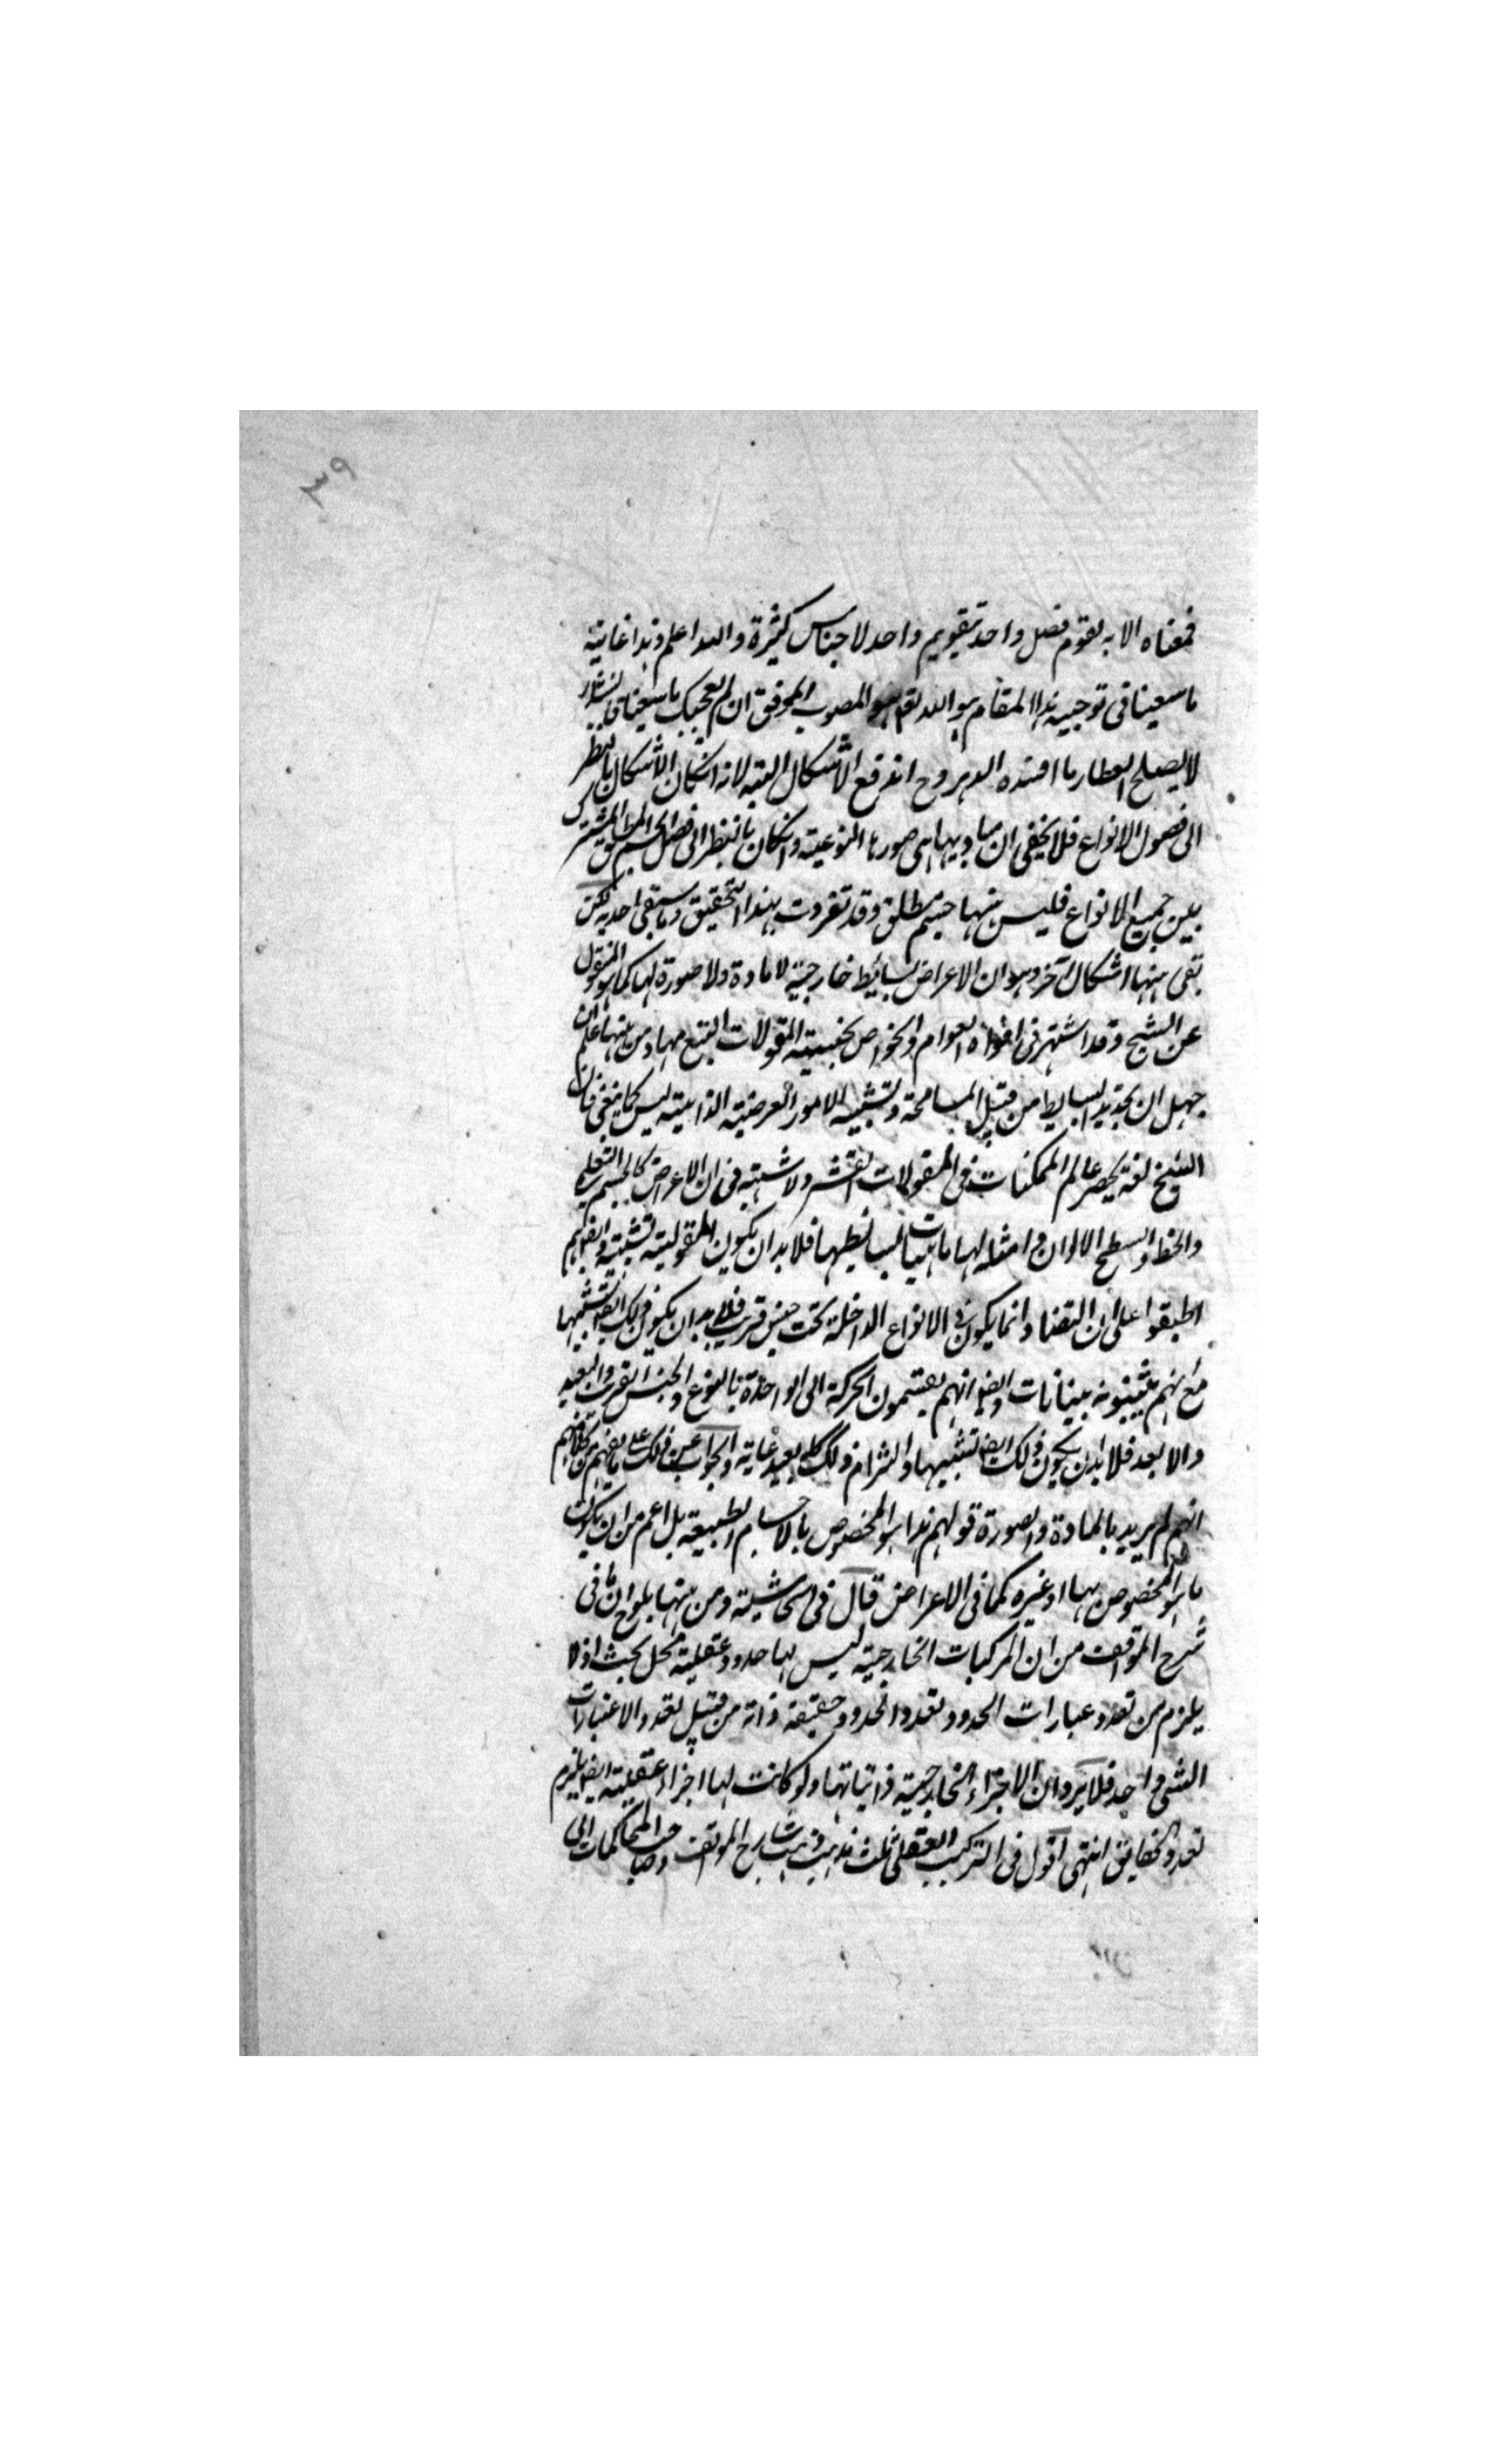 ٣٩
فمعناه الا به يقوم فصل واحد تقويم واحد لاجناس كثيرة والله اعلم وهذا غاية
ما سعينا فى توجيه هذا المقام هو الله تعم هو المصوب الموفق ان لم يعجبك ما سعينا
لا يصلح العطار ما افسده الدهر وح اندفع الاشكال البتة لانه انكان الاشكال بالنظر
الى فصول الانواع فلا يخفى ان مباديها هى صورها النوعية وانكان بالنظر الى فصل الجسم المطلق المشترك
بين جميع الانواع فليس منها جسم مطلق وقد تفردت بهذا التحقيق وما سبقنى احد به لكن
بقى هنها اشكال آخر وهو ان الاعراض بسائط خارجية لا مادة ولا صورة لها كما هو المنقول
عن الشيخ وقد اشتهر فى افواه العوام والخواص بجنسية المقولات التسع مهاد من هنها علم ان
جهل ان تحديد البسايط من قبيل المسامحة وتشبيه الامور العرضية الذاتية ليس كما ينبغى فان
الشيخ لفة يحصر عالم الممكنات فى المقولات العشر ولا شبهة فى ان الاعراض كالجسم التعليمى
والخط والسطح الالوان وامثالها ماهيات لبسائطها فلا بد ان يكون المقولية تشبيه وايضا هم
اطبقوا على ان التضاد انما يكون فى الانواع الداخلة تحت جنس قريب فلا بد ان يكون ذلك ايضا تشبيها
مع انهم يثبتونه ببيانات وايضا انهم يقسمون الحركة الى الواحدة بالنوع والجنس القريب والبعيد
والا بعد فلا بد ان يكون ذلك ايضا تشبيها والتزام ذلك كله بعيد غاية والجواب عن ذلك على ما يفهم من كلامهم
انهم لم يريد بالمادة والصورة قولهم هذا هو المخصوص بالاجسام الطبيعية بل اعم من ان يكون
ما هو المخصوص بها او غيره كما فى الاعراض قال فى الحاشية ومن هنها يلوح ان ما فى
شرح المواقف من ان المركبات الخارجية ليس لها حدود عقلية محل بحث اذ لا
يلزم من تعدد عبارات الحدود تعدد الحدود حقيقة فانه من قبيل تعدد الاعتبارات
الشى واحد فلا يرد ان الاجزاء الخارجية ذاتياتها ولو كانت لها اجزاء عقلية ايضا يلزم
تعدد الحقايق انتهى اقول فى التركيب العقلى ثلث مذهب ذهب شارح المواقف وصاحب المحاكمات الى